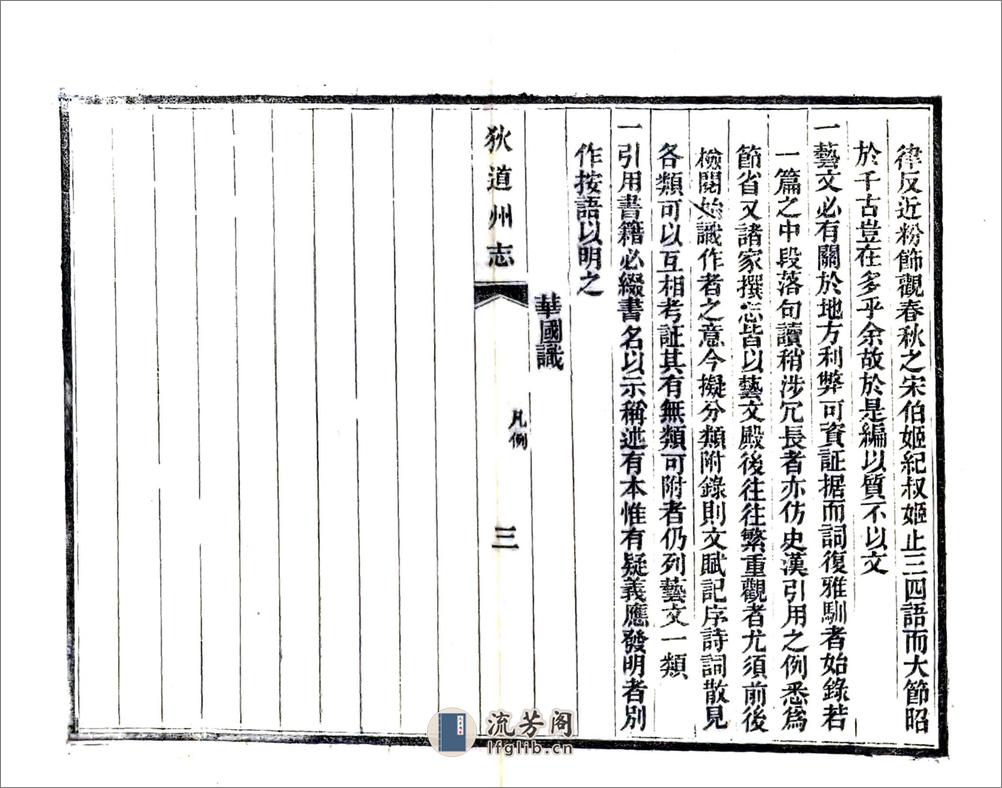 律反近粉飾觀春秋之宋伯姬紀叔姬止三四語而大節昭
於千古豈在多乎余故於是編以質不以文
一藝文必有關於地方利弊可資証据而詞復雅馴者始錄若
一篇之中段落句讀稍涉冗長者亦仿史漢引用之例悉為
節省又諸家撰志皆以藝文殿後往往繁重觀者尤須前後
檢閱始識作者之意今擬分類附錄則文賦記序詩詞散見
各類可以互相考証其有無類可附者仍列藝文一類
一引用書籍必綴書名以示稱述有本惟有疑義應發明者別
作按語以明之
華國識
狄道州志
凡例
三
流芳阁
lfglib.cn